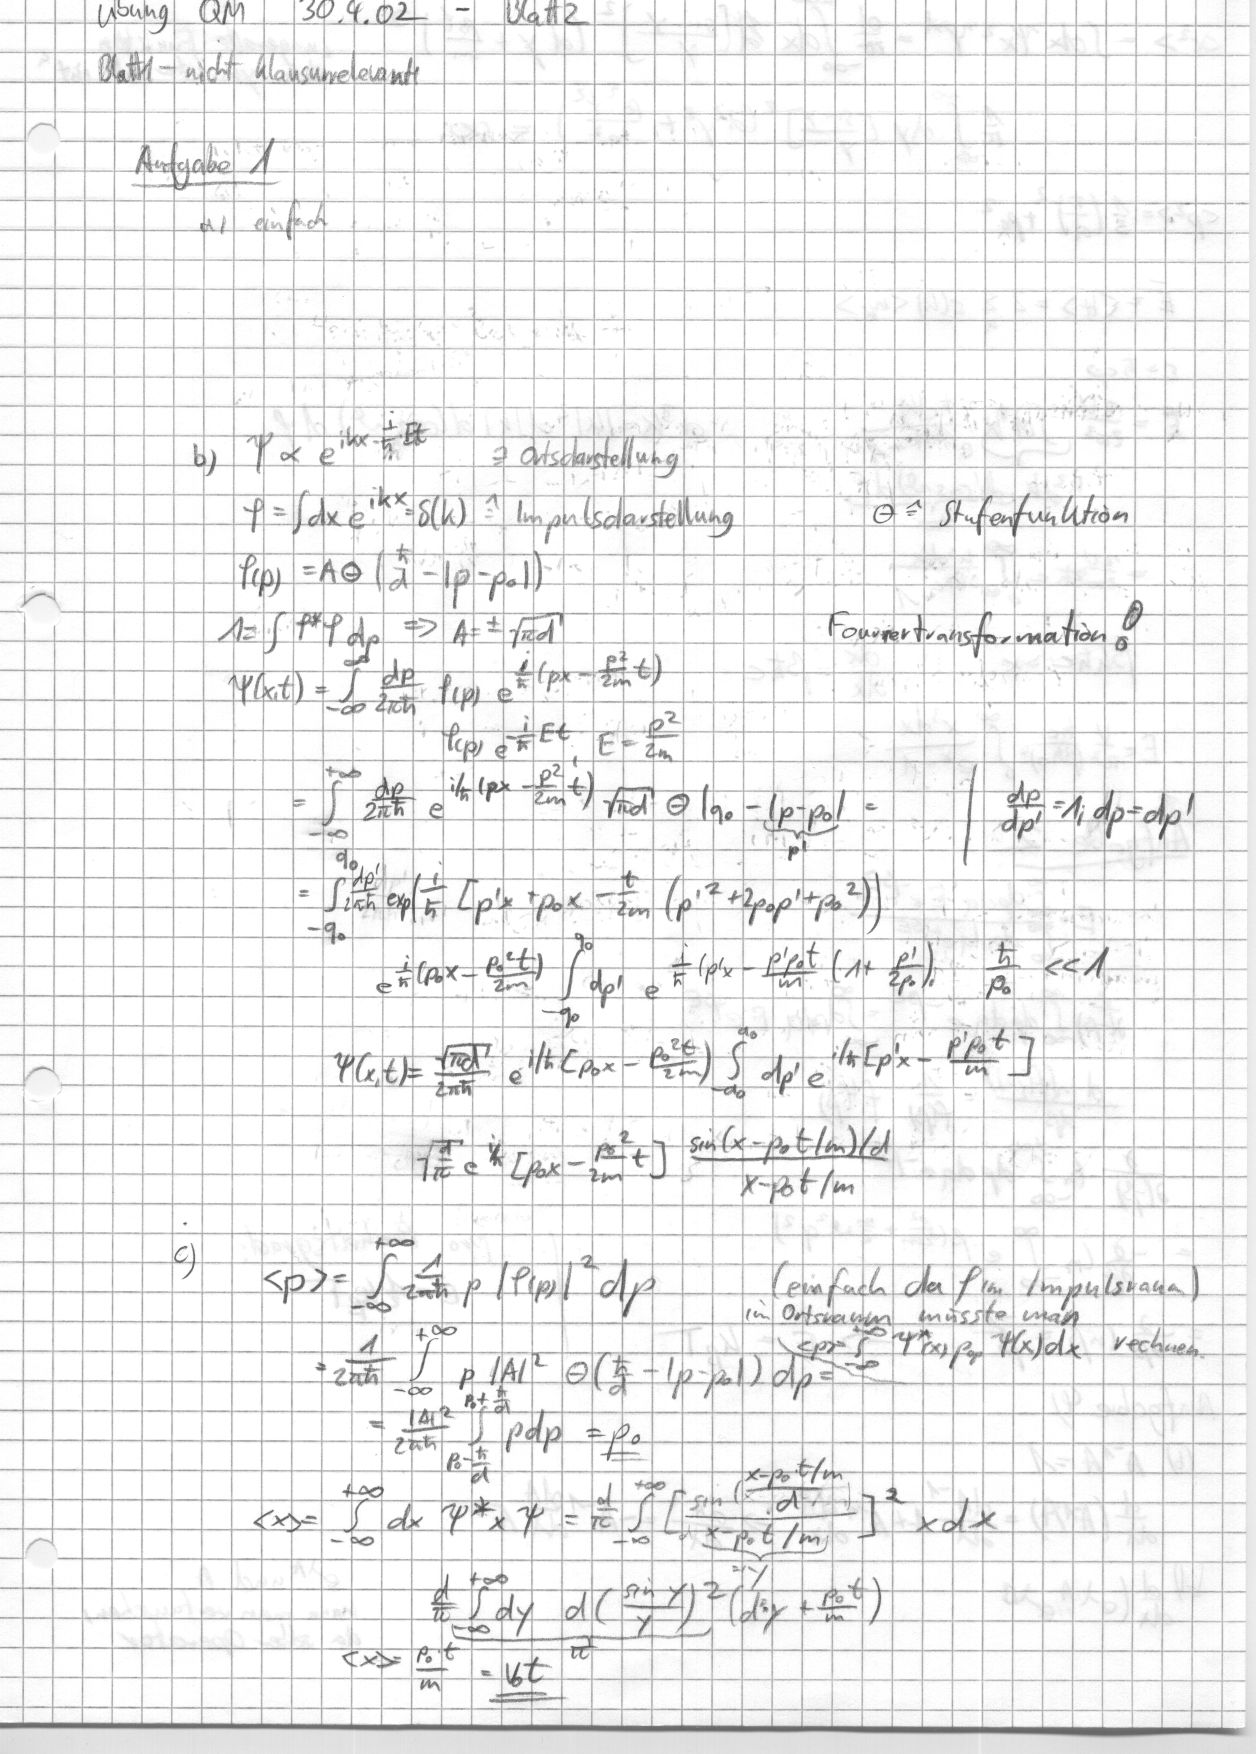 Übung QM 30.4.02 - Blatt 2
Blatt 1 - nicht klausurrelevant
Aufgabe 1
a) einfach
b) ψ ∝ e^{ikx - i/ħ Et} ≙ Ortsdarstellung
φ = ∫dx e^{ikx} = δ(k) ≙ Impulsdarstellung Θ ≙ Stufenfunktion
φ(p) = A Θ (ħ/d - |p-p₀|)
1 = ∫ φ*φ dp ⇒ A = ± √(πd) Fouriertransformation!
ψ(x,t) = ∫_{-∞}^{∞} dp/(2πħ) φ(p) e^{i/ħ (px - p²/2m t)}
φ(p) e^{-i/ħ Et}, E = p²/2m
= ∫_{-∞}^{+∞} dp/(2πħ) e^{i/ħ (px - p²/2m t)} √(πd) Θ |q₀ - |p-p₀| = | dp/dp' = 1; dp = dp'
p'
= ∫_{-q₀}^{q₀} dp'/(2πħ) exp(i/ħ [p'x + p₀x - t/2m (p'² + 2p₀p' + p₀²))
e^{i/ħ (p₀x - p₀²t/2m)} ∫_{-q₀}^{q₀} dp' e^{i/ħ (p'x - p'p₀t/m (1 + p'/2p₀)}, ħ/p₀ << 1
ψ(x,t) = √(πd)/(2πħ) e^{i/ħ [p₀x - p₀²t/2m)} ∫_{-q₀}^{q₀} dp' e^{i/ħ [p'x - p'p₀t/m]}
√(d/π) e^{i/ħ [p₀x - p₀²/2m t]} sin(x-p₀t/m)/d / x-p₀t/m
c) <p> = ∫_{-∞}^{+∞} 1/(2πħ) p |φ(p)|² dp (einfach da φ im Impulsraum)
im Ortsraum müsste man
<p> = ∫_{-∞}^{+∞} ψ*(x) p_op ψ(x) dx rechnen.
= 1/(2πħ) ∫_{-∞}^{+∞} p |A|² Θ(ħ/d - |p-p₀|) dp =
= |A|²/(2πħ) ∫_{p₀-ħ/d}^{p₀+ħ/d} p dp = p₀
<x> = ∫_{-∞}^{+∞} dx ψ* x ψ = d/π ∫_{-∞}^{+∞} [sin((x-p₀t/m)/d) / x-p₀t/m]² x dx
=: y
d/π ∫_{-∞}^{+∞} dy d (sin y / y)² (d²y + p₀t/m)
π
<x> = p₀t/m = v₀t